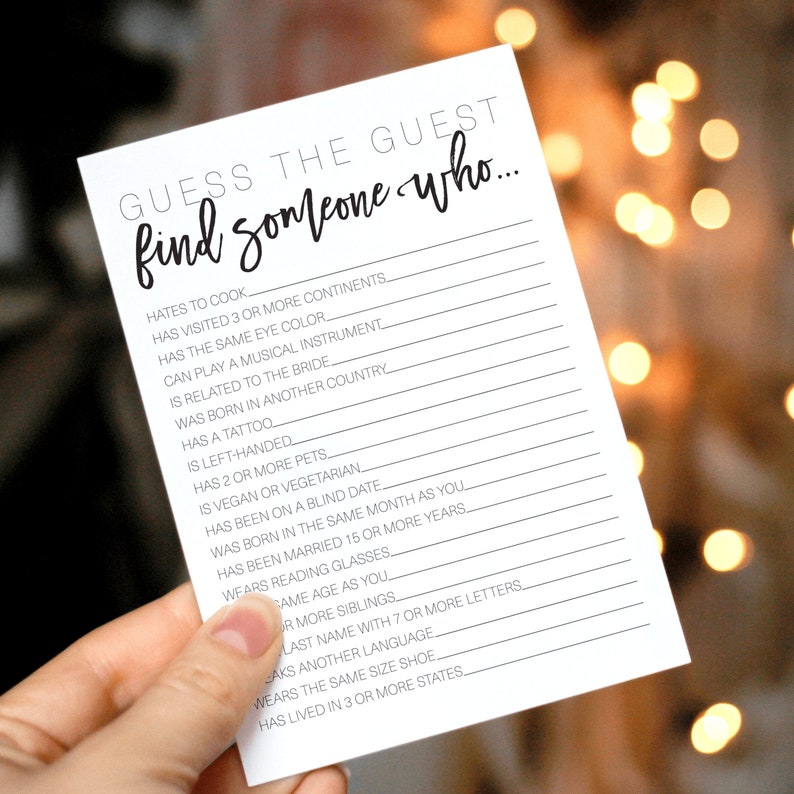 GUESS THE GUEST
find someone who...
HATES TO COOK
HAS VISITED 3 OR MORE CONTINENTS
HAS THE SAME EYE COLOR
CAN PLAY A MUSICAL INSTRUMENT
IS RELATED TO THE BRIDE
WAS BORN IN ANOTHER COUNTRY
HAS A TATTOO
IS LEFT-HANDED
HAS 2 OR MORE PETS
IS VEGAN OR VEGETARIAN
HAS BEEN ON A BLIND DATE
WAS BORN IN THE SAME MONTH AS YOU
HAS BEEN MARRIED 15 OR MORE YEARS
WEARS READING GLASSES
SAME AGE AS YOU
OR MORE SIBLINGS
LAST NAME WITH 7 OR MORE LETTERS
EAKS ANOTHER LANGUAGE
WEARS THE SAME SIZE SHOE
HAS LIVED IN 3 OR MORE STATES